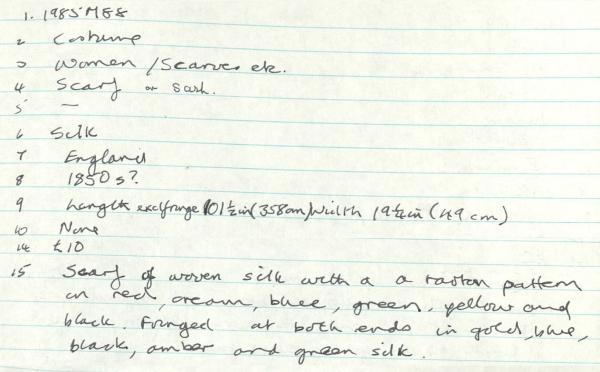 1. 1985 M88
2 Costume
3 Women / Scarves etc.
4 Scarf or sash.
5 —
6 Silk
7 England
8 1850s?
9 Length excl fringe 101½in (358cm) Width 19¼in (49cm)
10 None
14 £10
15 Scarf of woven silk with a a tartan pattern
in red, cream, blue, green, yellow and
black. Fringed at both ends in gold, blue,
black, amber and green silk.